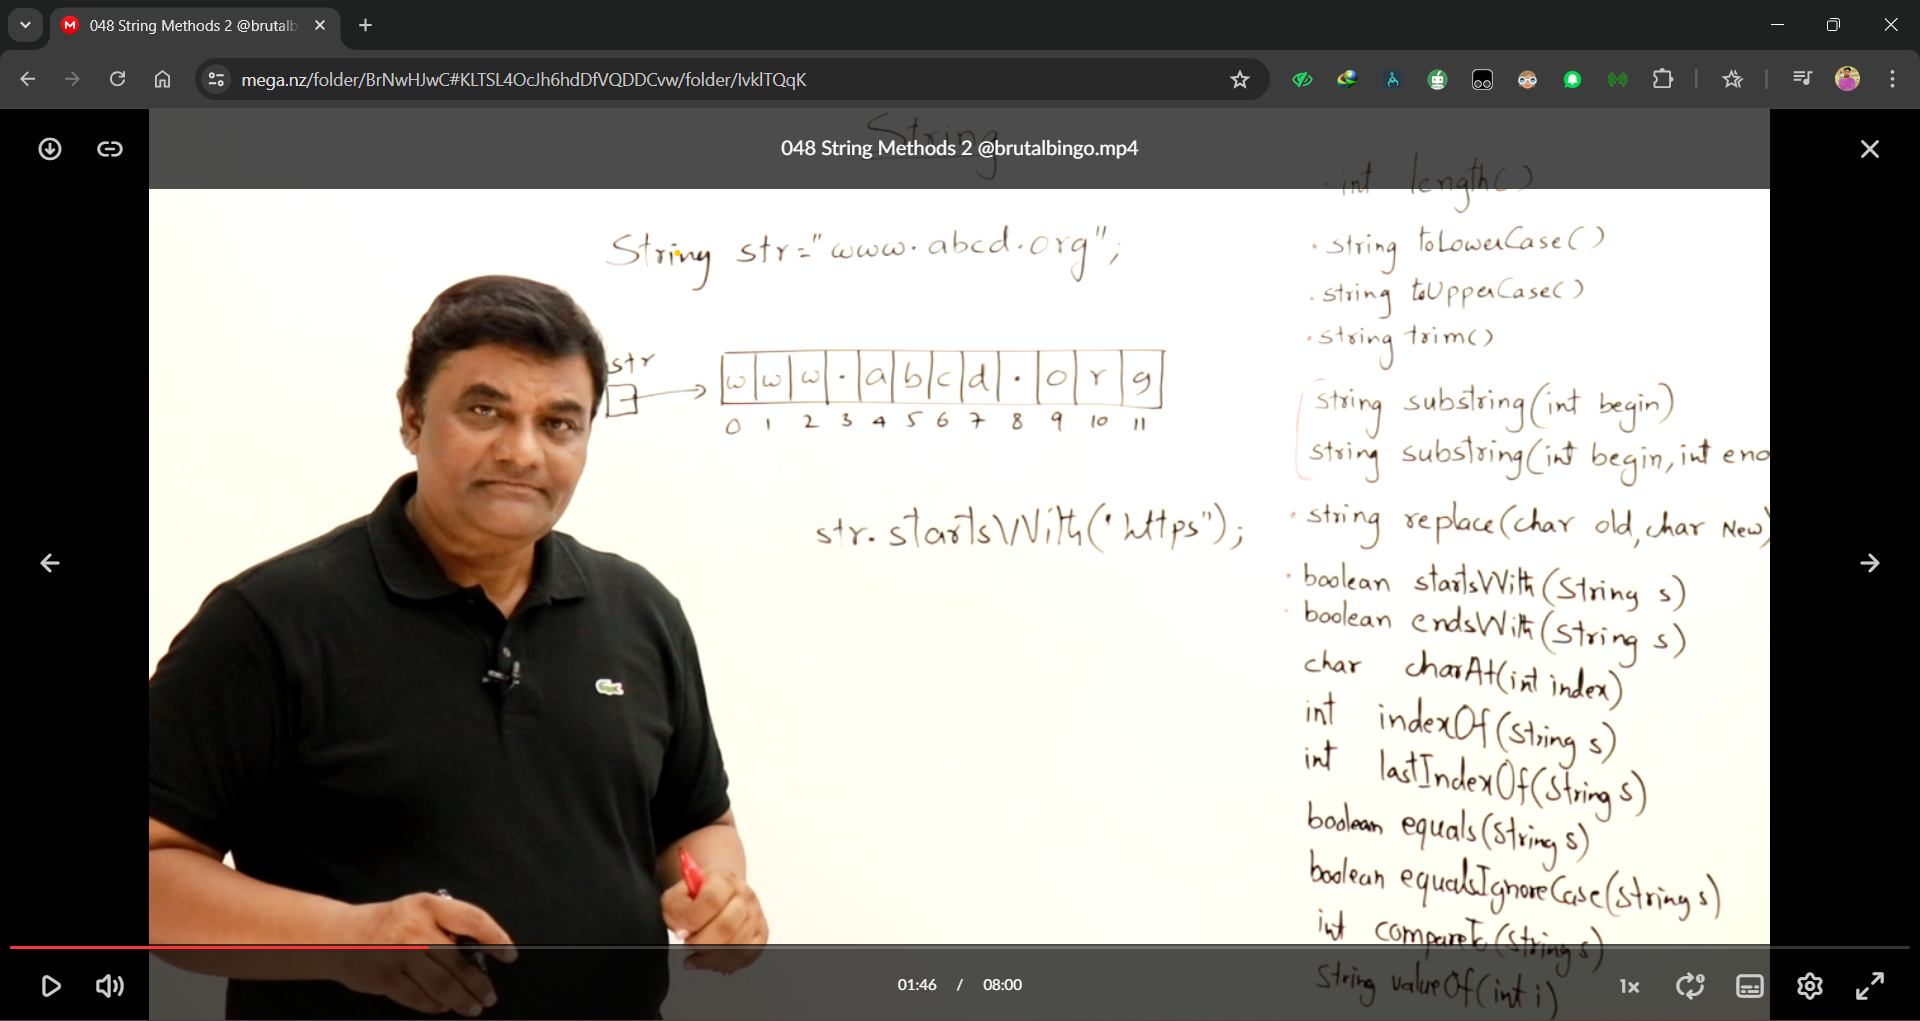 048 String Methods 2 @brutalb
mega.nz/folder/BrNwHJwC#KLTSL4OcJh6hdDfVQDDCvw/folder/IvklTQqK
048 String Methods 2 @brutalbingo.mp4
String
String str="www.abcd.org";
str
w w w . a b c d . o r g
0 1 2 3 4 5 6 7 8 9 10 11
str.startsWith("https");
· int length()
· string toLowerCase()
· string toUpperCase()
· string trim()
string substring(int begin)
string substring(int begin, int end
· string replace(char old, char New)
· boolean startsWith(String s)
· boolean endsWith(String s)
char charAt(int index)
int indexOf(String s)
int lastIndexOf(String s)
boolean equals(String s)
boolean equalsIgnoreCase(String s)
int compareTo(String s)
String valueOf(int i)
01:46 / 08:00
1x